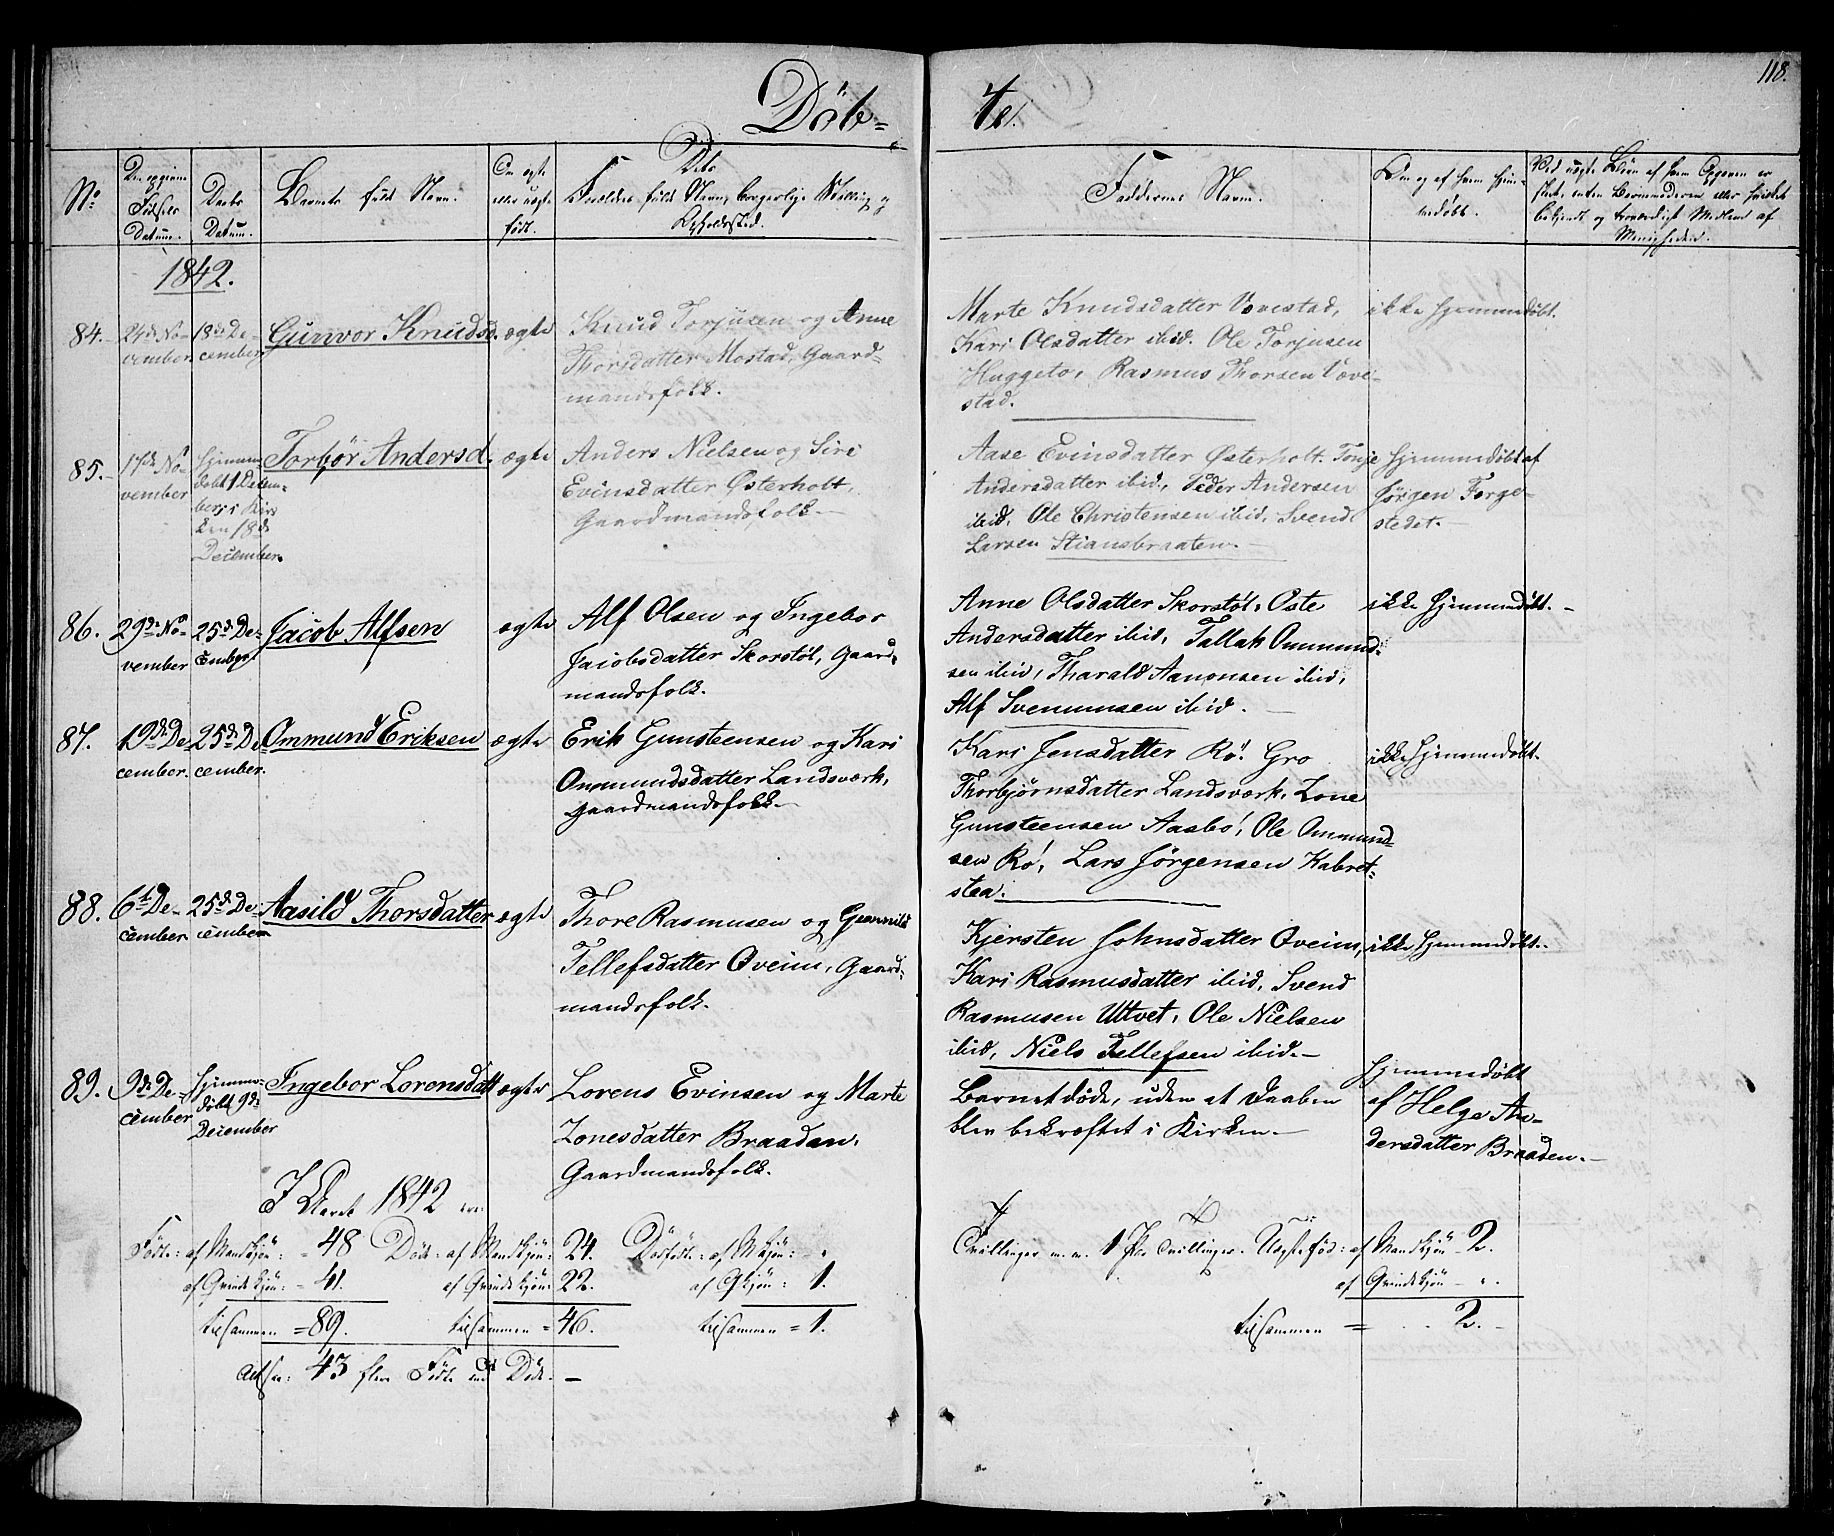 118.
Döb= te.
No.
Den opgivne Fødsels Datum.
Daabs Datum.
Barnets fulde Navn.
Om ægte eller uægte født.
Dets Forældres fulde Navn, borgerlige Stilling og Opholdssted.
Faddernes Navne.
Om og af hvem hjemmedøbt.
1842.
84. 24de November 18de December Gunvor Knudsd. ægte
Knud Torjusen og Anne
Thorsdatter Mostad, Gaard=
mandsfolk.
Marte Knudsdatter Vovestad,
Kari Olsdatter ibid. Ole Torjusen
Huggeto, Rasmus Thorsen Vove=
stad.
ikke hjemmedøbt.
85. 17de November hjemmedøbt 1 December, i Kirken 18de December. Torbjør Andersd. ægte
Anders Nielsen og Siri
Evinsdatter Østerholt,
Gaardmandsfolk.
Aase Evinsdatter Østerholt. Tonje
Andersdatter ibid., Peder Andersen
ibid, Ole Christensen ibid, Svend
Larsen Stiansbraaten.
hjemmedøbt af
Jörgen Forge=
stedet.
86. 29de November 25de December Jacob Alfsen ægte
Alf Olsen og Ingebor
Jacobsdatter Skorstöl, Gaard=
mandsfolk.
Anne Olsdatter Skorstöl, Oste
Andersdatter ibid, Tallak Ommund=
sen ibid, Tharald Aanonsen ibid,
Alf Svenumsen ibid.
ikke hjemmedøbt.
87. 19de December 25de December Ommund Eriksen ægte
Erik Gunsteensen og Kari
Ommundsdatter Landsværk,
Gaardmandsfolk.
Kari Jensdatter Rö. Gro
Thorbjørnsdatter Landsværk, Zone
Gunsteensen Aasbö, Ole Ommund=
sen Rö, Lars Jörgensen Kabret=
stea.
ikke hjemmedøbt.
88. 6te December 25de December Aasild Thorsdatter ægte
Thore Rasmusen og Gunnild
Tellefsdatter Oveim, Gaard=
mandsfolk.
Kjersten Johnsdatter Oveim,
Kari Rasmusdatter ibid, Svend
Rasmusen Uttvet, Ole Nielsen
ibid, Niels Tellefsen ibid.
ikke hjemmedøbt.
89. 9de December hjemmedøbt 9de December Ingebor Lorensdatt ægte
Lorens Evinsen og Marte
Zonesdatter Braaden,
Gaardmandsfolk.
Barnet døde, uden at Daaben
blev bekræftet i Kirken.
hjemmedøbt
af Helge An=
dersdatter Braaden.
I Aaret 1842 ere:
Fødte: af Mandkjön: = 48 Döde: af Mandkjön: 24. Dødfødte: af Mkjön: "
af Qvindekjön: = 41. af Qvindekjön: 22. af Qkjön: 1.
tilsammen = 89. tilsammen = 46. tilsammen = 1.
Altsaa: 43 flere Fødte end Döde.
Trillinger m. m. 1 Par Tvillinger. Uægte fød: af Mandkjön 2.
af Qvindekjön "
tilsammen = 2.